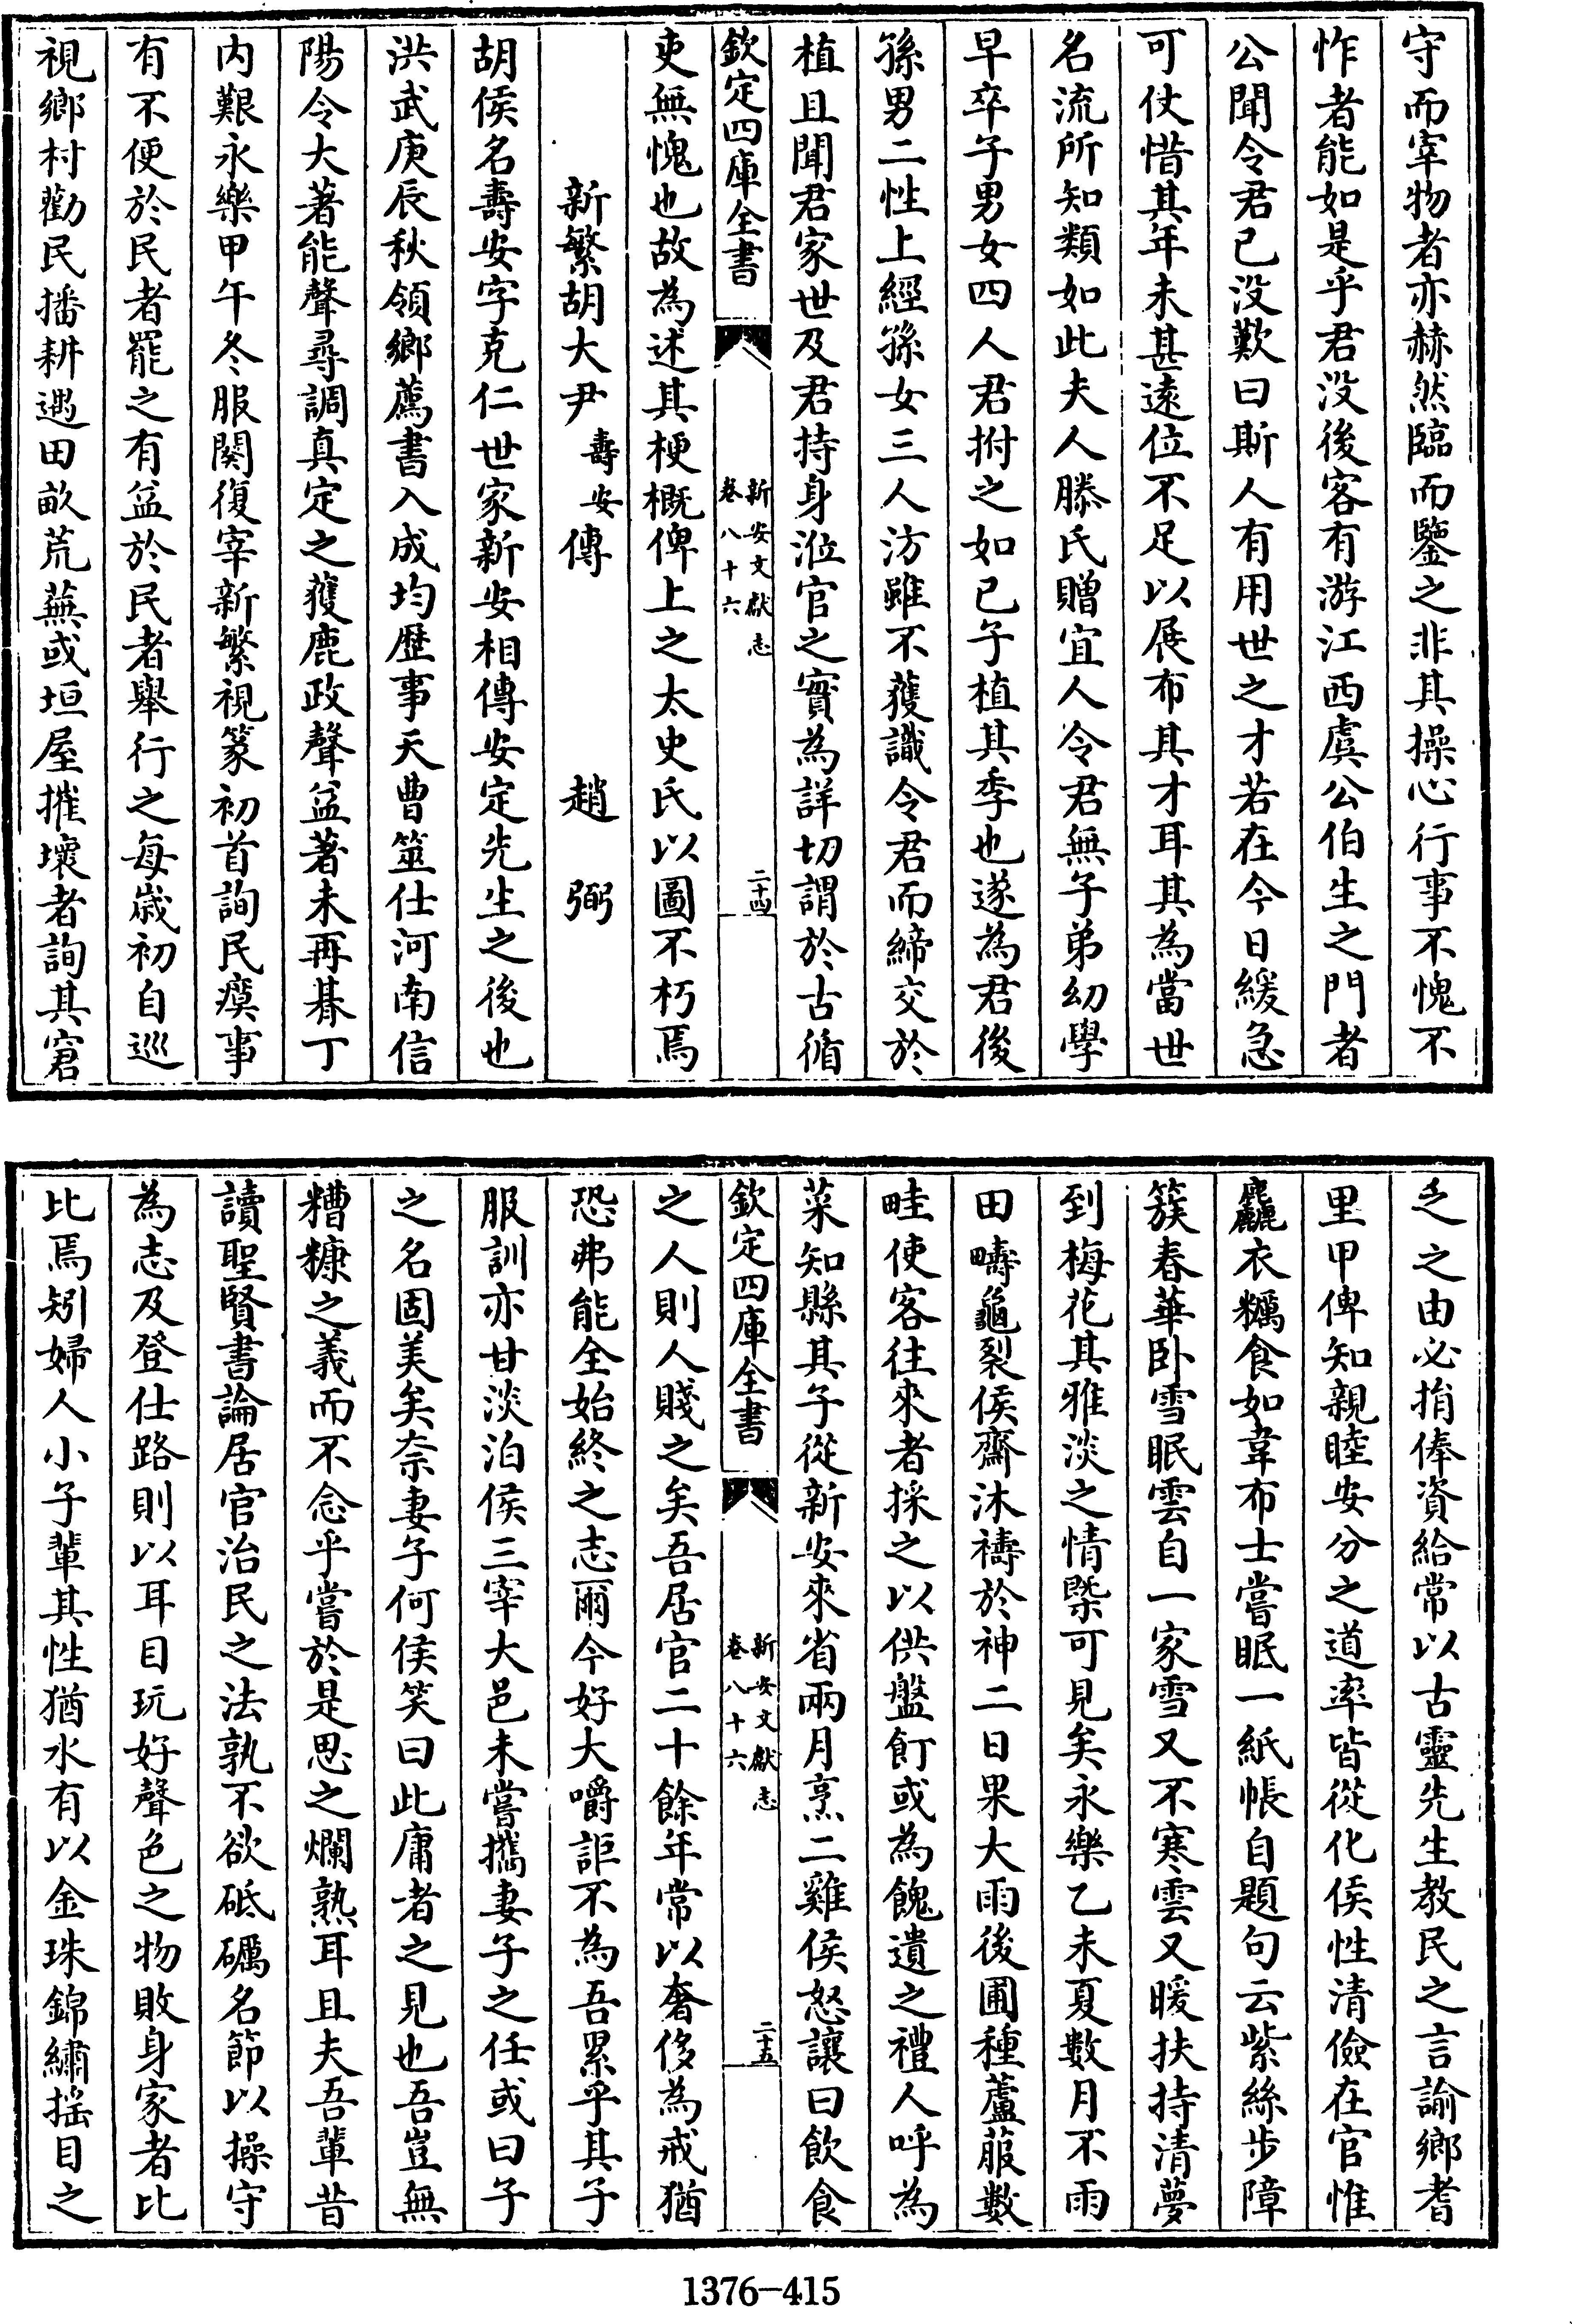 守而宰物者亦赫然臨而鑒之非其操心行事不愧不
怍者能如是乎君没後客有游江西虞公伯生之門者
公聞令君已没歎曰斯人有用世之才若在今日緩急
可仗惜其年未甚遠位不足以展布其才耳其為當世
名流所知類如此夫人滕氏贈宜人令君無子弟幼學
早卒子男女四人君拊之如已子植其季也遂為君後
孫男二性上經孫女三人汸雖不獲識令君而締交於
植且聞君家世及君持身涖官之實為詳切謂於古循
欽定四庫全書
新安文獻志
卷八十六
二十四
吏無愧也故為述其梗概俾上之太史氏以圖不朽焉
新繁胡大尹壽安傳 趙弼
胡侯名壽安字克仁世家新安相傳安定先生之後也
洪武庚辰秋領鄉薦書入成均歴事天曹筮仕河南信
陽令大著能聲尋調真定之獲鹿政聲益著未再朞丁
内艱永樂甲午冬服闋復宰新繁視篆初首詢民瘼事
有不便於民者罷之有益於民者舉行之每歲初自巡
視鄉村勸民播耕遇田畝荒蕪或垣屋摧壞者詢其窘
乏之由必捐俸資給常以古靈先生教民之言諭鄉耆
里甲俾知親睦安分之道率皆從化侯性清儉在官惟
麤衣糲食如韋布士嘗眠一紙帳自題句云紫絲步障
簇春華卧雪眠雲自一家雪又不寒雲又暖扶持清夢
到梅花其雅淡之情槩可見矣永樂乙未夏數月不雨
田疇龜裂侯齋沐禱於神二日果大雨後圃種蘆菔數
畦使客往來者採之以供盤飣或為餽遺之禮人呼為
菜知縣其子從新安來省兩月烹二雞侯怒讓曰飲食
欽定四庫全書
新安文獻志
卷八十六
二十五
之人則人賤之矣吾居官二十餘年常以奢侈為戒猶
恐弗能全始終之志爾今好大嚼詎不為吾累乎其子
服訓亦甘淡泊侯三宰大邑未嘗攜妻子之任或曰子
之名固美矣奈妻子何侯笑曰此庸者之見也吾豈無
糟糠之義而不念乎嘗於是思之爛熟耳且夫吾輩昔
讀聖賢書論居官治民之法孰不欲砥礪名節以操守
為志及登仕路則以耳目玩好聲色之物敗身家者比
比焉矧婦人小子輩其性猶水有以金珠錦繡搖目之
1376-415